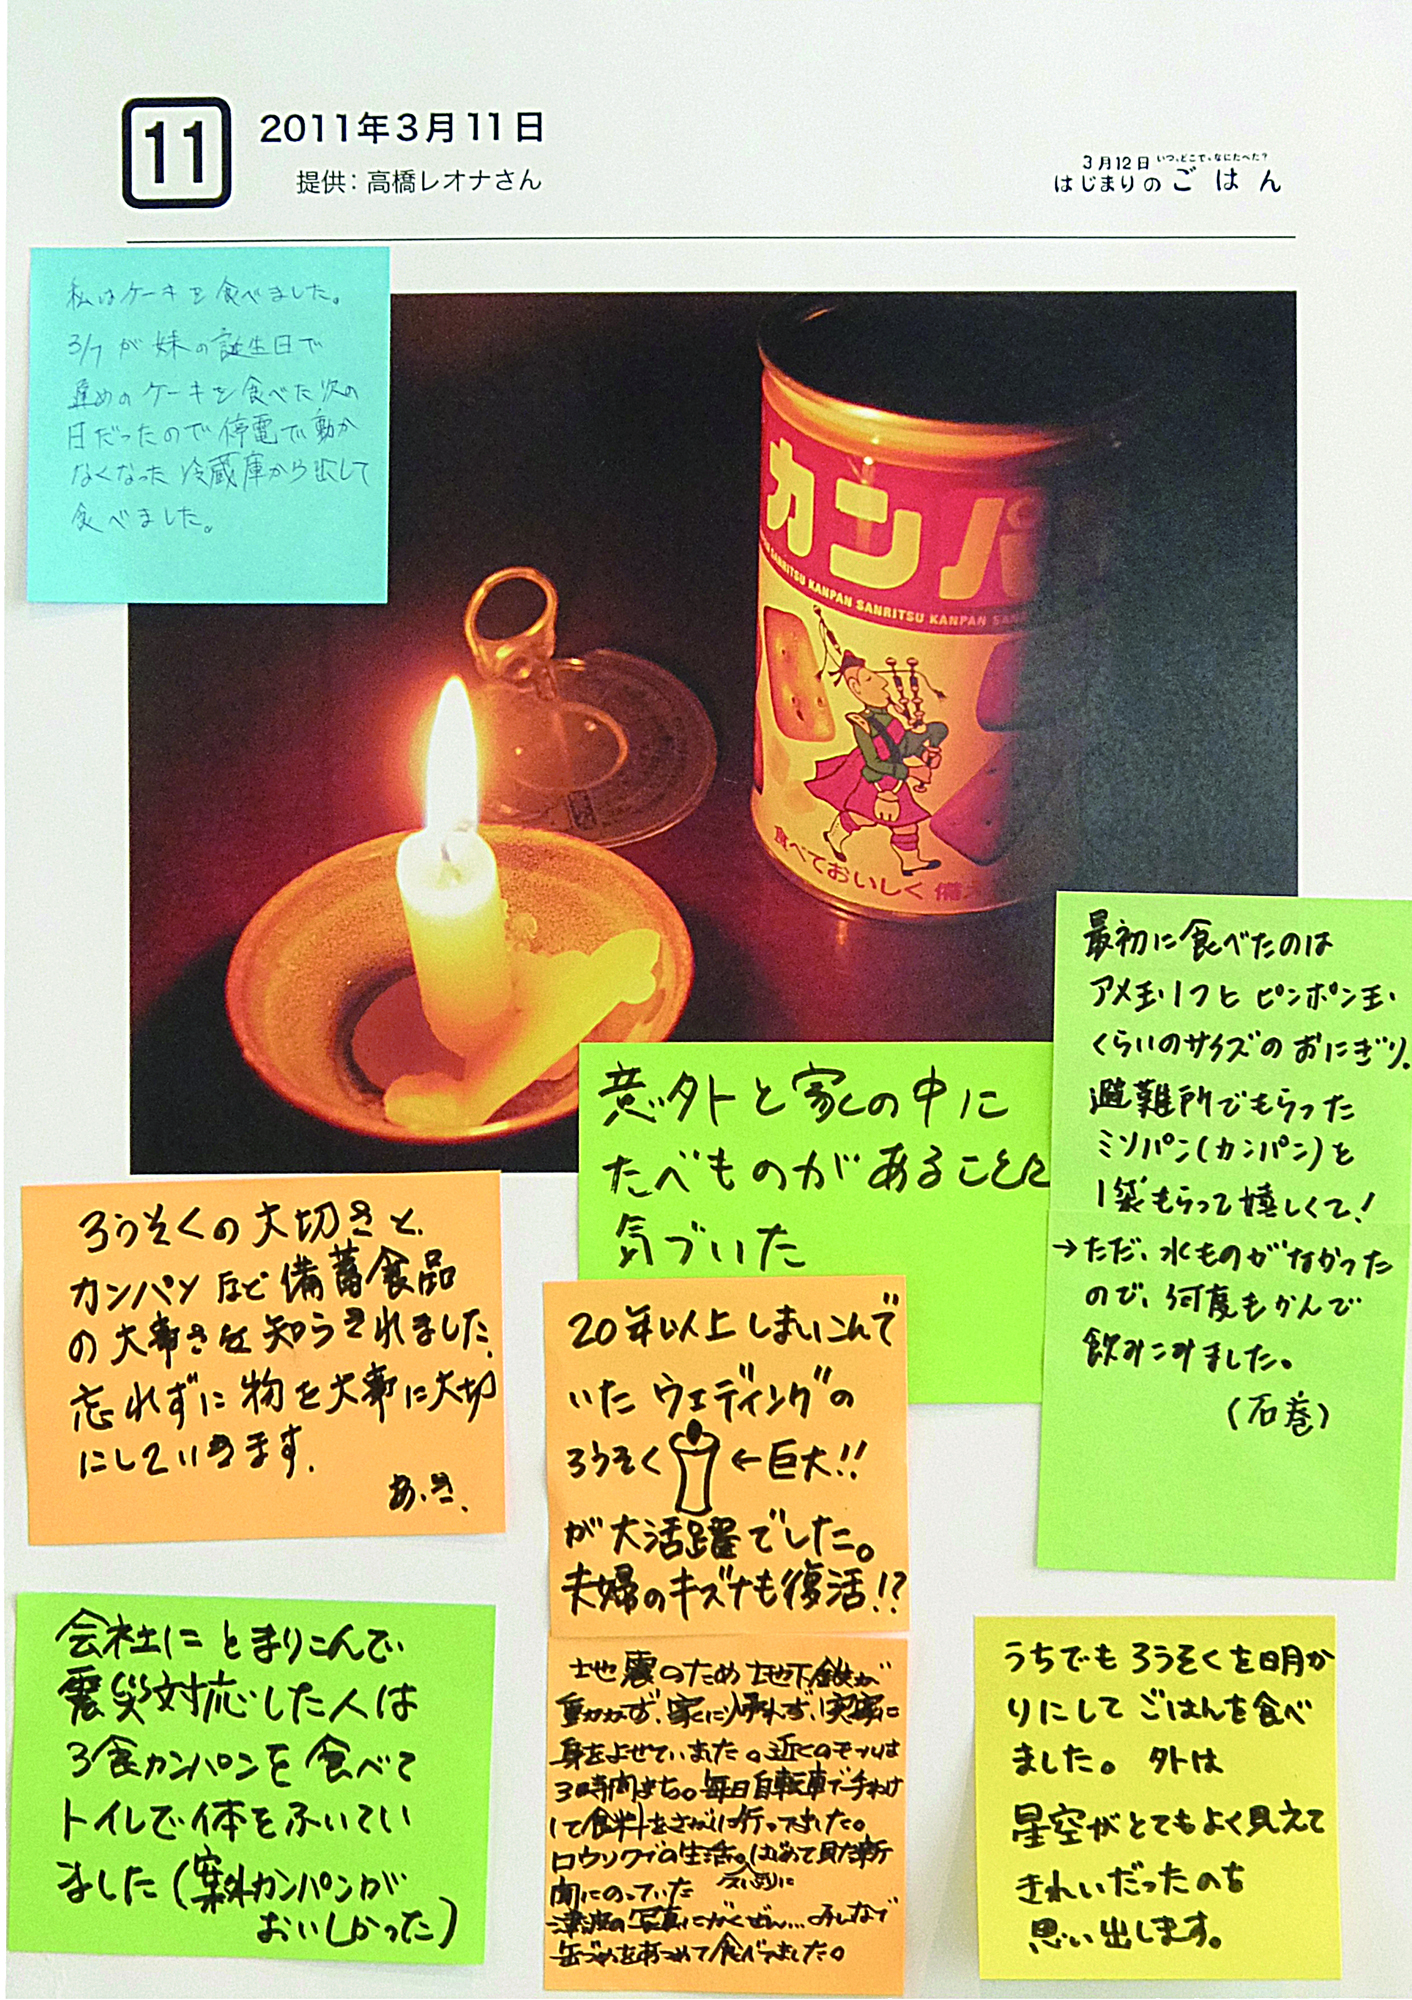 11
2011年3月11日
提供：高橋レオナさん
3月12日 いつ、どこで、なにたべた？
はじまりのごはん
私はケーキを食べました。
3/7が妹の誕生日で
遅めのケーキを食べた次の
日だったので停電で動か
なくなった冷蔵庫から出して
食べました。
カンパ
SANRITSU KANPAN SANRITSU KANPAN SAN
食べておいしく 備え
最初に食べたのは
アメ玉1つと ピンポン玉
くらいのサイズのおにぎり。
避難所でもらった
ミソパン(カンパン)を
1袋もらって嬉しくて!
→ただ、水ものがなかった
ので、何度もかんで
飲みこみました。
(石巻)
意外と家の中に
たべものがあることに
気づいた
ろうそくの大切さと
カンパンなど備蓄食品
の大事さを知らされました。
忘れずに物を大事に大切
にしていきます.
あ.き.
20年以上しまいこんで
いた ウェディングの
ろうそく ←巨大!!
が大活躍でした。
夫婦のキズナも復活!?
会社に とまりこんで
震災対応した人は
3食カンパンを食べて
トイレで体をふいてい
ました(案外カンパンが
おいしかった)
地震のため地下鉄が
動かず、家に帰れず、実家に
身をよせていました。近くのモールは
3時間まち。毎日自転車で手わけ
して食料をさがしに行ってきました。
ロウソクでの生活。はじめて見た新
聞にのっていた
津波の写真にがくぜん…みんなで
缶づめをあつめて食べてました。
うちでも ろうそくを明か
りにして ごはんを食べ
ました。 外は
星空がとてもよく見えて
きれいだったのを
思い出します。